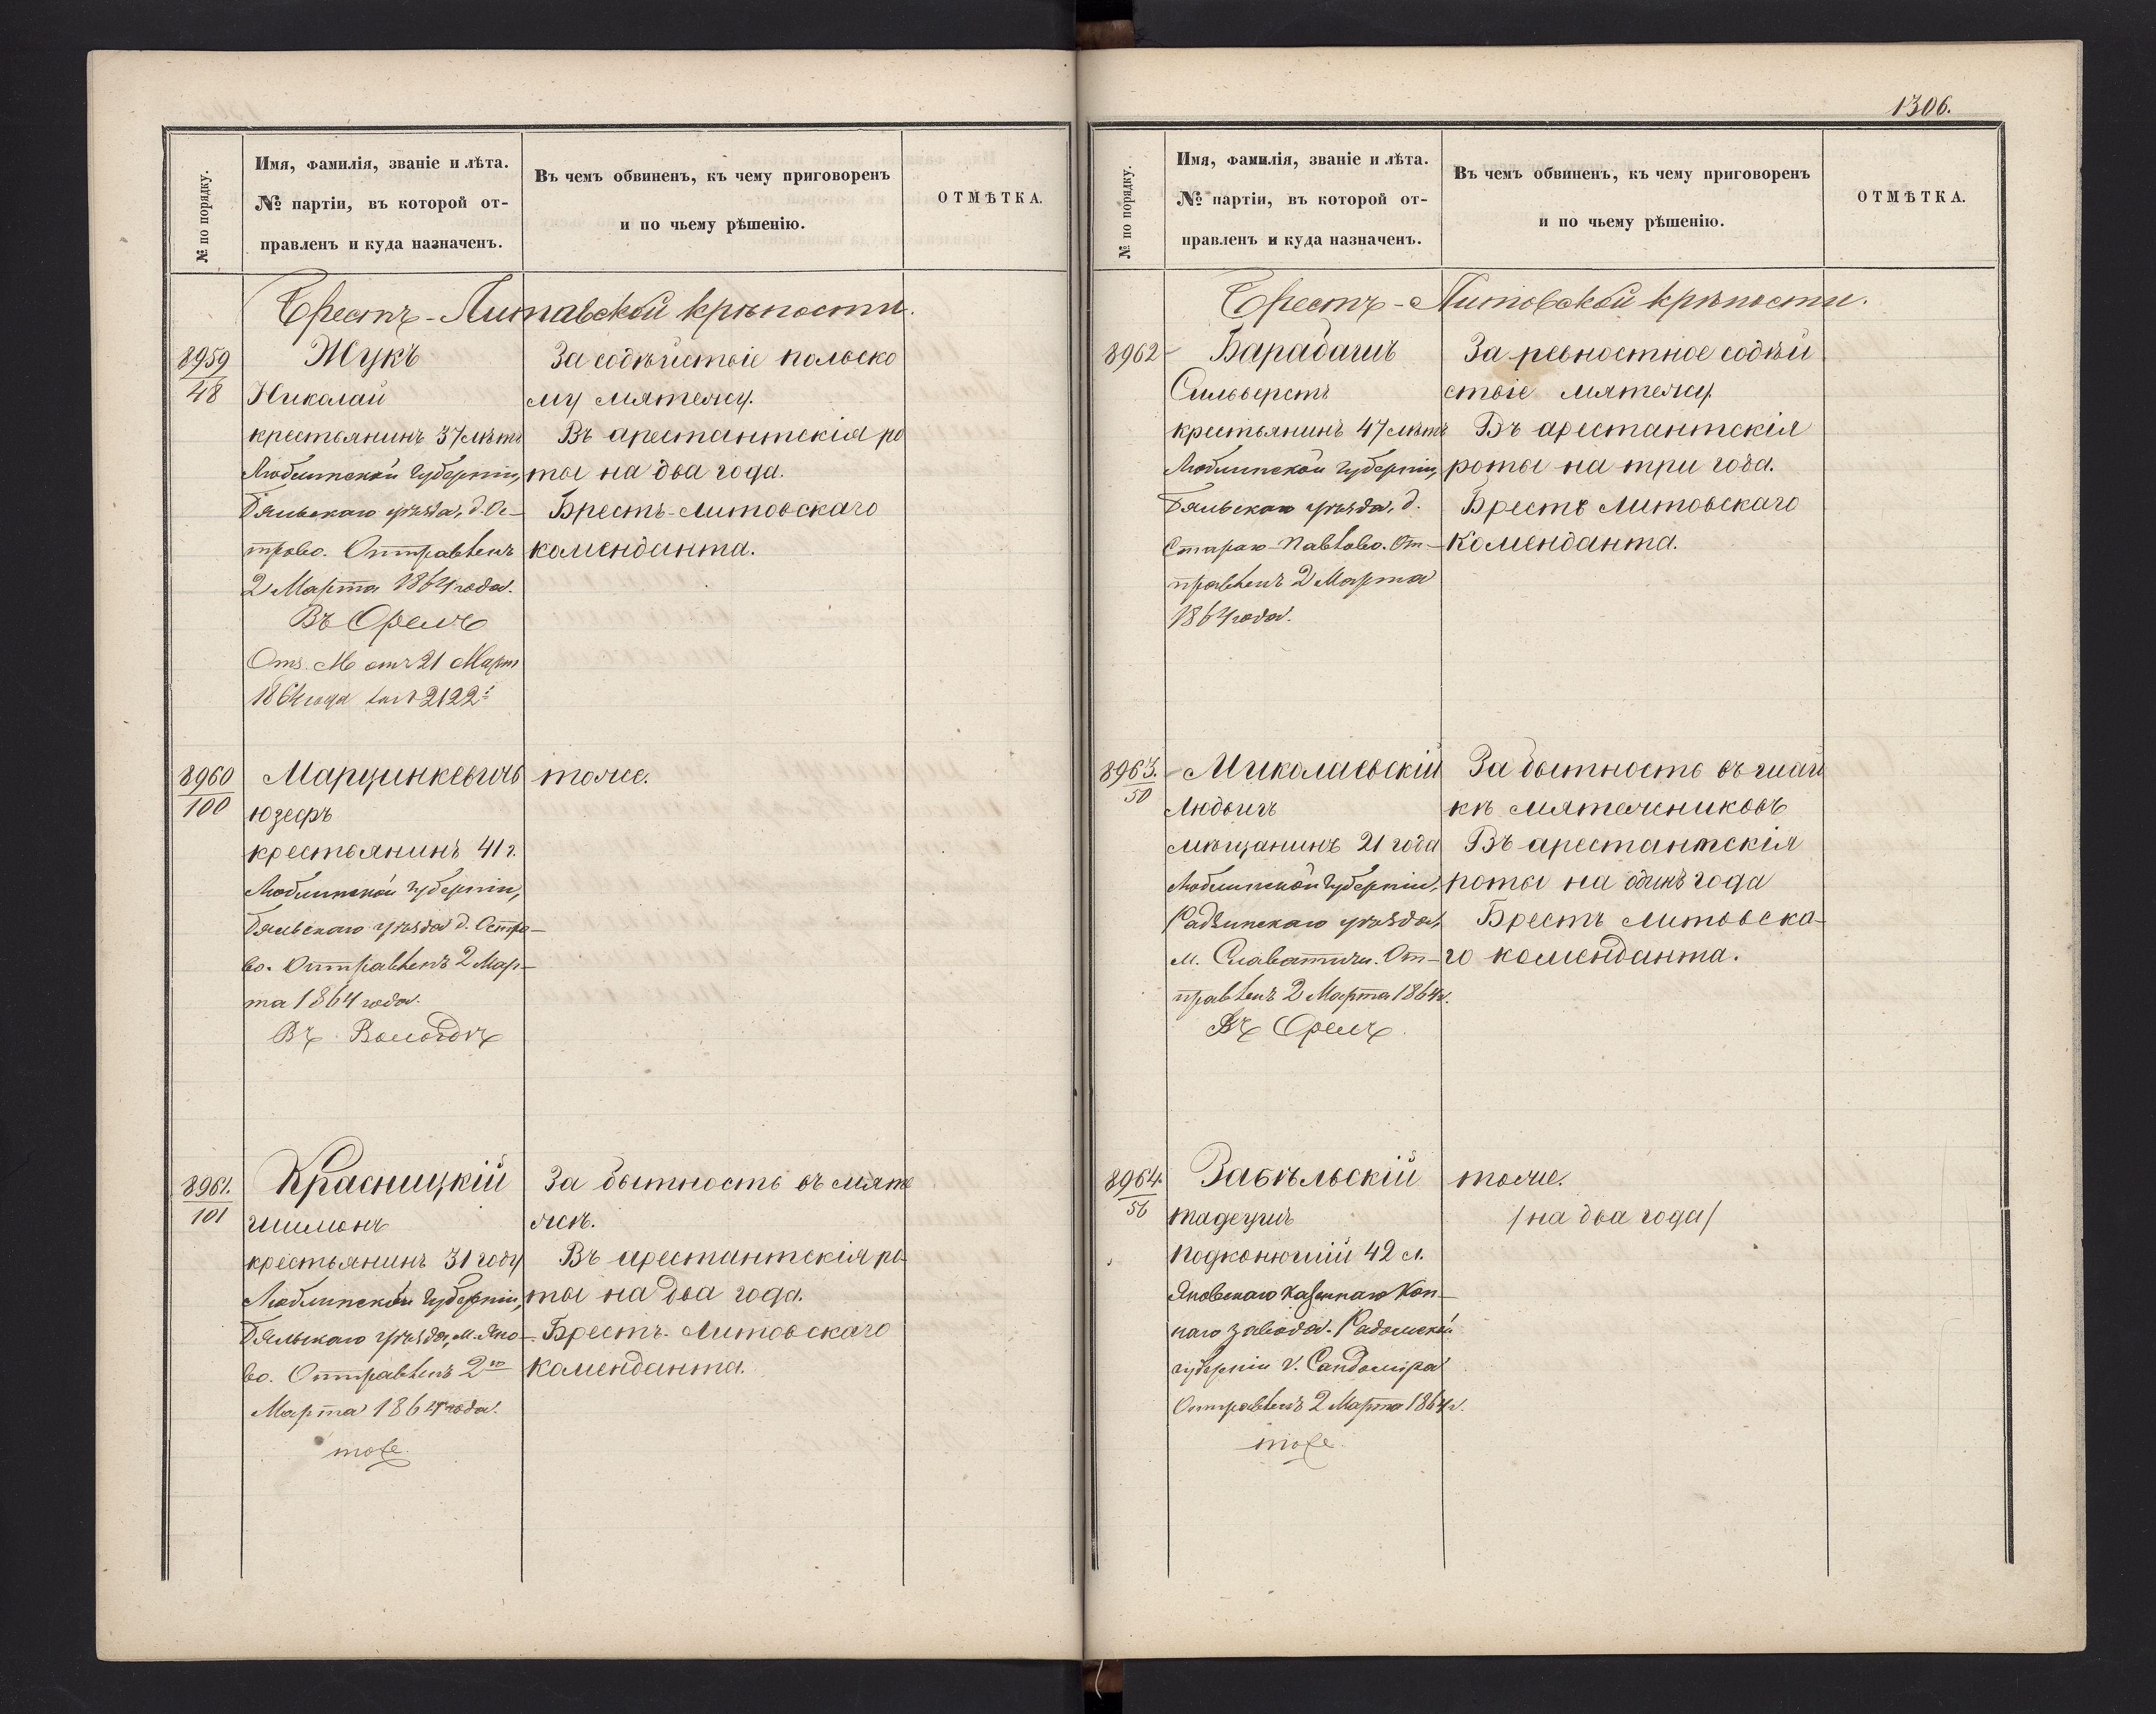 № по порядку.
Имя, фамилія, званіе и лѣта.
№ партіи, въ которой от-
правленъ и куда назначенъ.
Въ чемъ обвиненъ, къ чему приговоренъ
и по чьему рѣшенію.
ОТМѢТКА.
Брестъ-Литовской крѣпости.
8959
48
Жукъ
Николай
крестьянинъ 37 лѣтъ
Люблинской губерніи,
Бяльскаго уѣзда, д. Ос-
трово. Отправленъ
2 Марта 1864 года.
Въ Орелъ
От. М отъ 21 Март
1864 года 2122
За содѣйствіе польско
му мятежу.
Въ арестантскія ро
ты на два года.
Брестъ-Литовскаго
коменданта.
8960
100
Марцинкевичъ
Юзефъ
крестьянинъ 41 г.
Люблинской губерніи,
Бяльскаго уѣзда д. Остро-
во. Отправленъ 2 Мар-
та 1864 года.
Въ Вологду
тоже.
8961.
101
Красницкій
Шимонъ
крестьянинъ 31 году
Люблинской губерніи,
Бяльскаго уѣзда, м. Яно-
во. Отправленъ 2го
Марта 1864 года.
тоже.
За бытность въ мяте
жѣ.
Въ арестантскія ро-
ты на два года.
Брестъ-Литовскаго
коменданта.
1306.
№ по порядку.
Имя, фамилія, званіе и лѣта.
№ партіи, въ которой от-
правленъ и куда назначенъ.
Въ чемъ обвиненъ, къ чему приговоренъ
и по чьему рѣшенію.
ОТМѢТКА.
Брестъ-Литовской крѣпости.
8962
Барабашъ
Сильверстъ
крестьянинъ 47 лѣтъ
Люблинской губерніи,
Бяльскаго уѣзда, д.
Стараго-Павлово. От-
правленъ 2 Марта
1864 года.
За ревностное содѣй
ствіе мятежу.
Въ арестантскія
роты на три года.
Брестъ Литовскаго
Коменданта.
8963.
50
Миколаевскій
Людвигъ
мѣщанинъ 21 года
Люблинской губерніи,
Радзинскаго уѣзда,
м. Славатичи. От-
правленъ 2 Марта 1864 г.
Въ Орелъ.
За бытность въ шай
кѣ мятежниковъ
Въ арестантскія
роты на одинъ года
Брестъ Литовска-
го коменданта.
8964.
56
Забѣльскій
Тадеушъ
подконюшій 42 л.
Яновскаго казеннаго Кон-
наго завода. Радомской
губерніи г. Сандомира
Отправленъ 2 Марта 1864 г.
тоже.
тоже.
/на два года/